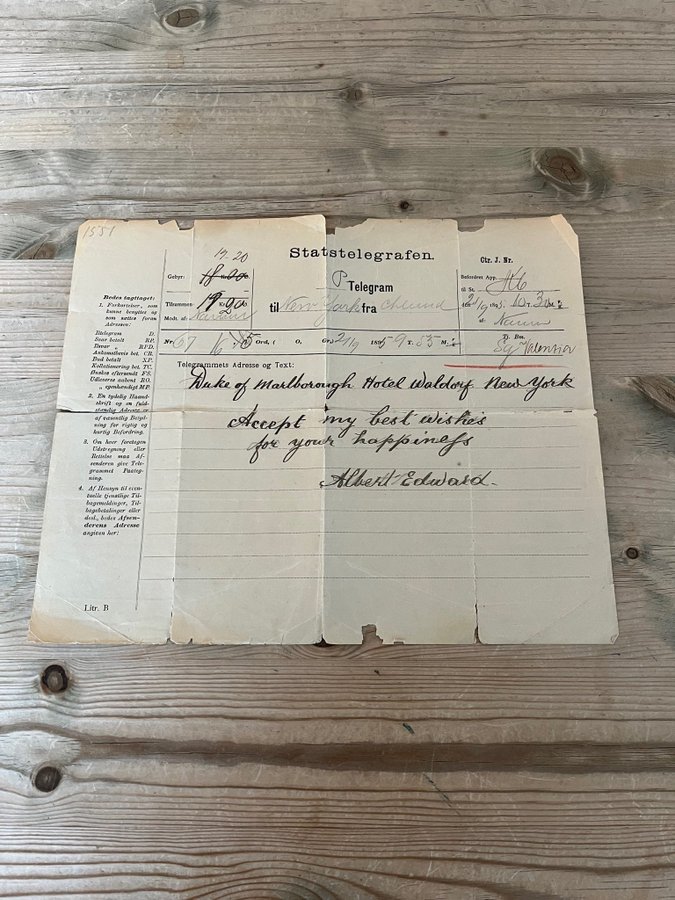 1551
19.20
Statstelegrafen.
Ctr. J. Nr.
Gebyr:
P Telegram
Befordret App.
til St.
til New York fra
Tilsammen
Modt. af:
af:
Nr. 67
Ord, ( O.
Tj. Bem.
Valensia
Bedes iagttaget:
1. Forkortelser, som
kunne benyttes og
som sættes foran
Adressen:
Iltelegram D.
Svar betalt RP.
Ilsvar „ RPD.
Ankomstbevis bet. CR.
Bud betalt XP.
Kollationering bet. TC.
Ønskes eftersendt FS.
Udleveres aabent RO.
„ egenhændigt MP.
2. En tydelig Haand-
skrift og en fuld-
stændig Adresse er
af væsentlig Betyd-
ning for rigtig og
hurtig Befordring.
3. Om hver foretagen
Udstregning eller
Rettelse maa Af-
senderen give Tele-
grammet Paateg-
ning.
4. Af Hensyn til even-
tuelle tjenstlige Til-
bagemeldinger, Til-
bagebetalinger eller
desl., bedes Afsen-
derens Adresse
angiven her:
Litr. B
Telegrammets Adresse og Text:
Duke of Marlborough Hotel Waldorf New York
Accept my best wishes
for your happiness
Albert Edward.